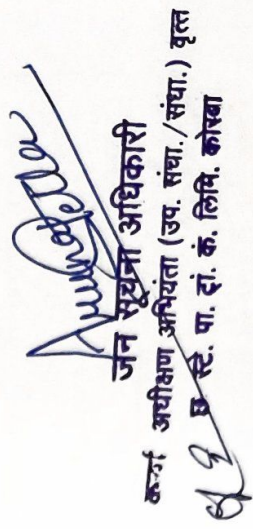 जन सूचना अधिकारी
कार्या. अधीक्षण अभियंता (उप. संधा./संधा.) वृत्त
छ. स्टे. पा. ट्रां. कं. लिमि. कोरबा